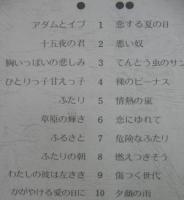 アダムとイブ 1 恋する夏の日
十五夜の君 2 悪い奴
胸いっぱいの悲しみ 3 てんとう虫のサン
ひとりっ子甘えっ子 4 裸のビーナス
ふたり 5 情熱の嵐
草原の輝き 6 恋にゆれて
ふるさと 7 危険なふたり
ふたりの朝 8 燃えつきそう
わたしの彼は左きき 9 傷つく世代
かがやける愛の日に 10 夕顔の雨